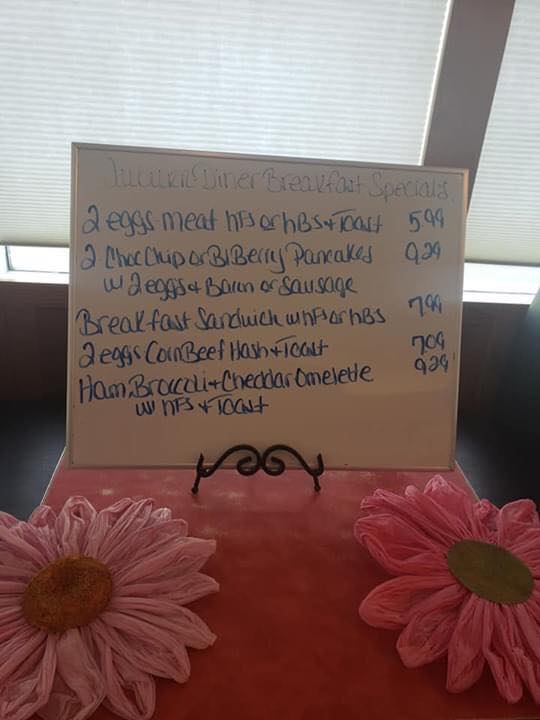 Diner Breakfast Specials
2 eggs meat hfs or hBs + Toast 5.99
2 ChocChip or BlBerry Pancakes 9.29
w 2 eggs + Bacon or Sausage
Breakfast Sandwich w hfs or hBs 7.99
2 eggs CornBeef Hash + Toast 7.09
Ham, Broccoli + Cheddar omelette 9.29
w/ hFs + Toast